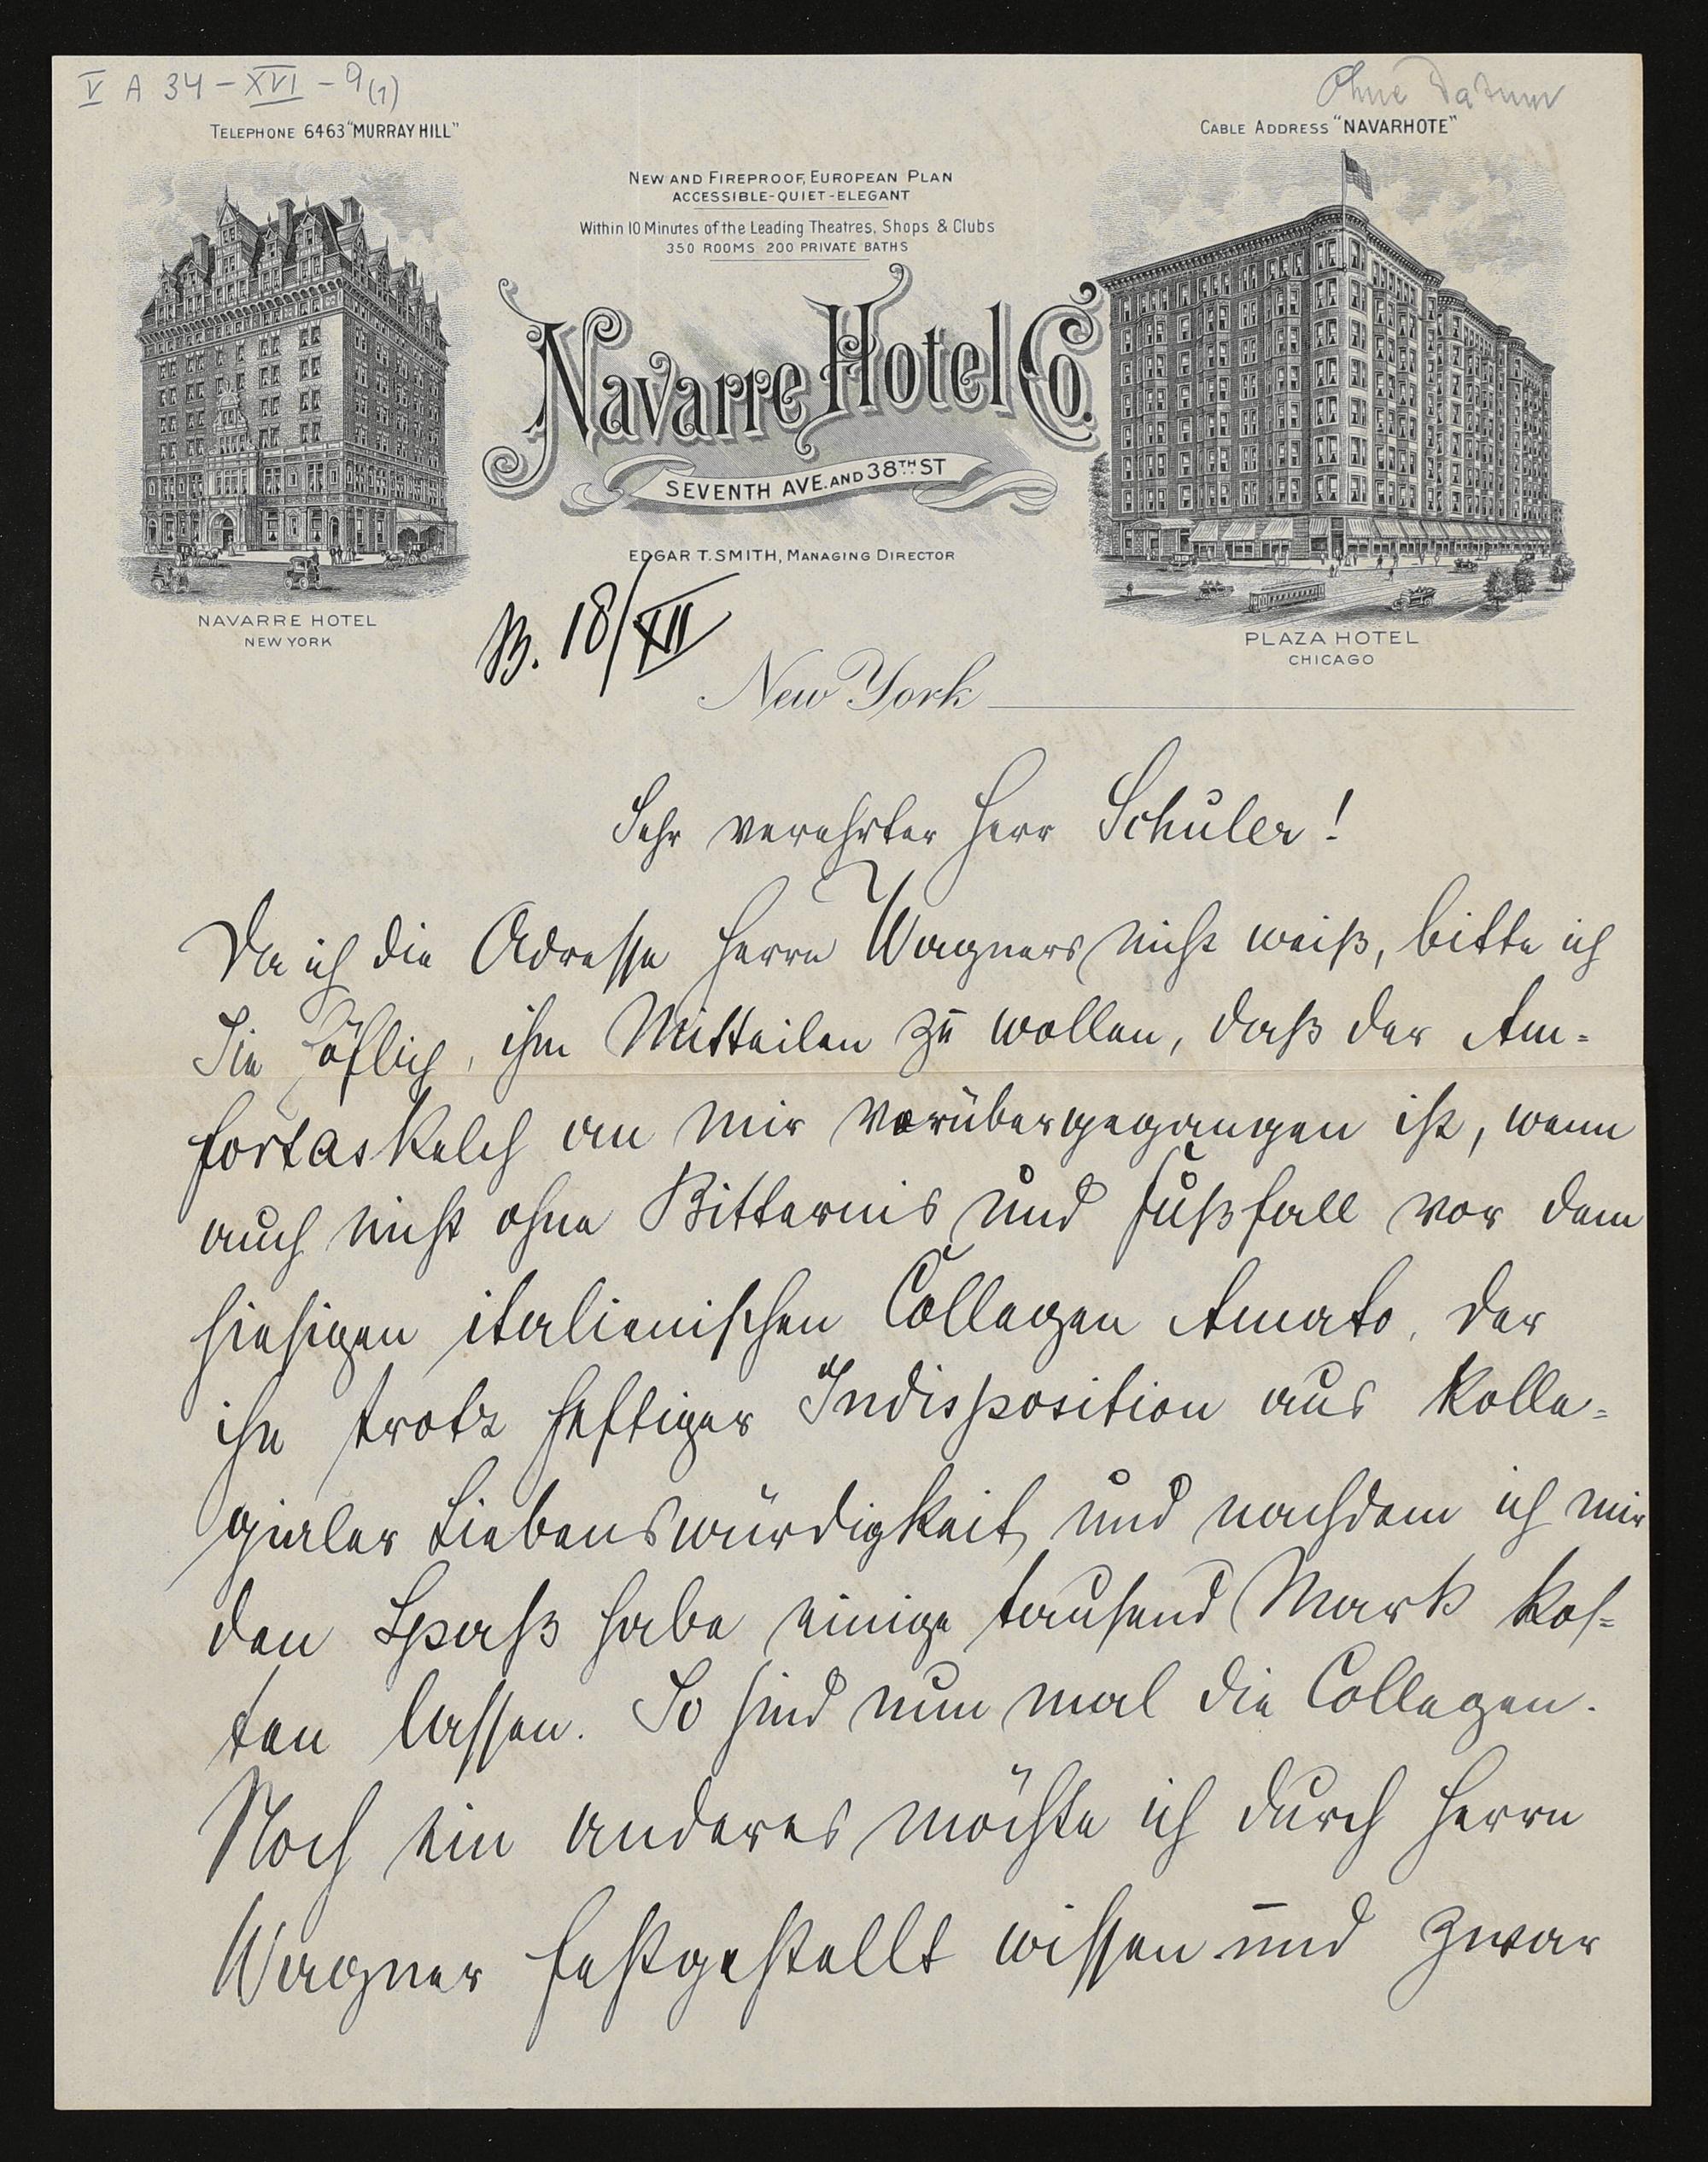 V A 34 – XVI – 9 (1)
Ohne Datum
TELEPHONE 6463 "MURRAY HILL"
CABLE ADDRESS "NAVARHOTE"
NEW AND FIREPROOF, EUROPEAN PLAN
ACCESSIBLE-QUIET-ELEGANT
Within 10 Minutes of the Leading Theatres, Shops & Clubs
350 ROOMS 200 PRIVATE BATHS
Navarre Hotel Co.
SEVENTH AVE. AND 38TH ST
EDGAR T. SMITH, MANAGING DIRECTOR
NAVARRE HOTEL
NEW YORK
PLAZA HOTEL
CHICAGO
B. 18/XII
New York
Sehr verehrter Herr Schuler!
Da ich die Adresse Herrn Wagners nicht weiß, bitte ich
Sie höflich, ihm Mitteilen zu wollen, daß der Am-
fortaskelch an mir vorübergegangen ist, wenn
auch nicht ohne Bitternis und Fußfall vor dem
hiesigen italienischen Collegen Amato, der
ihn trotz heftiger Indisposition aus kolle-
gialer Liebenswürdigkeit und nachdem ich mir
den Spaß habe einige tausend Mark kos-
ten lassen. So sind nun mal die Collegen.
Noch ein anderes möchte ich durch Herrn
Wagner festgestellt wissen und zwar